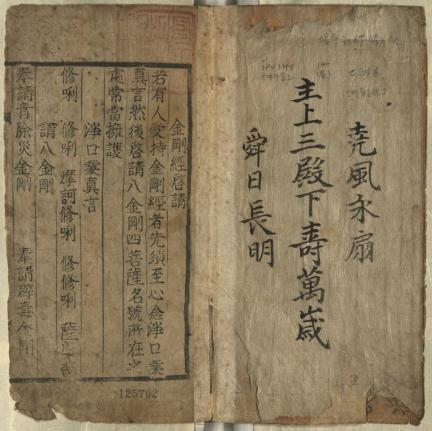 堯風永扇
主上三殿下壽萬歲
舜日長明
金剛經啓請
若有人受持金剛經者先須至心念淨口業
真言然後啓請八金剛四菩薩名號所在之
處常當擁護
淨口業真言
修唎 修唎 摩訶修唎 修修唎
請八金剛
奉請青除灾金剛 奉請辟毒金剛
125702